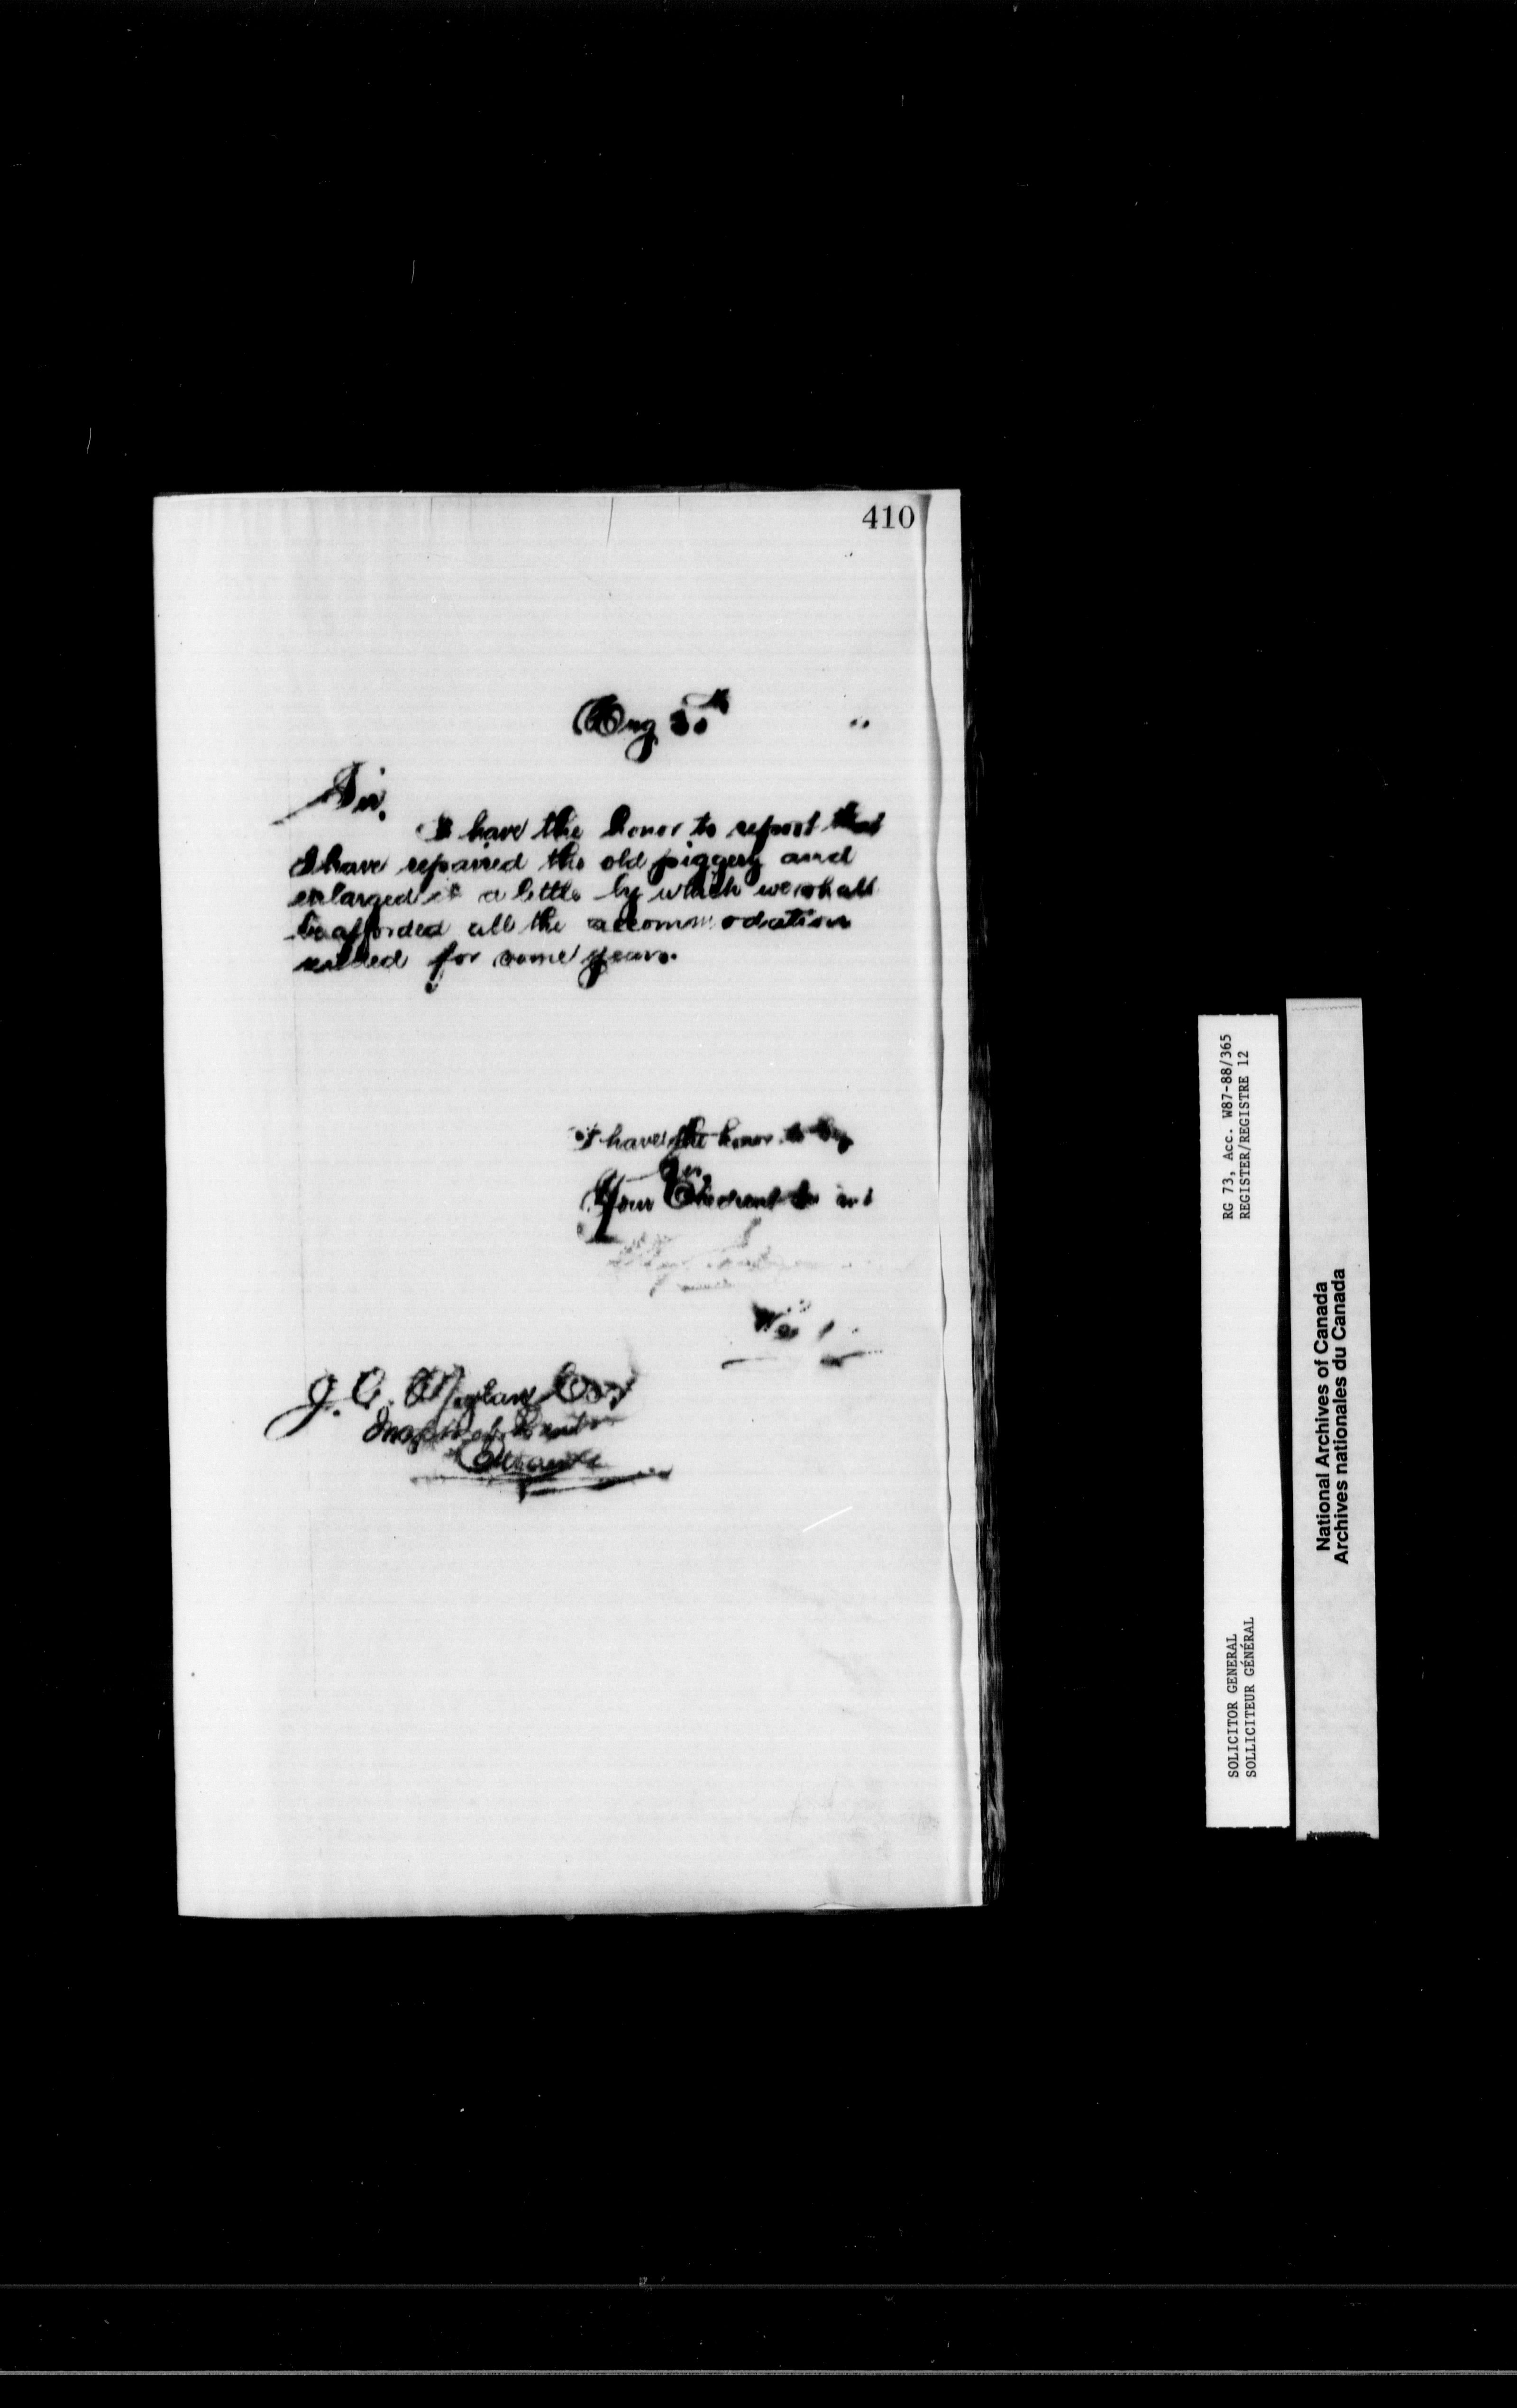 410
Aug 30th
Sir,
I have the honor to report that
I have repaired the old piggery and
enlarged it a little by which we shall
be afforded all the accommodation
needed for some years.
I have the honor to be
Sir,
Your Obedient
J. G. Moylan Esq
Inspector of
Ottawa
RG 73, Acc. W87-88/365
REGISTER/REGISTRE 12
SOLICITOR GENERAL
SOLLICITEUR GÉNÉRAL
National Archives of Canada
Archives nationales du Canada